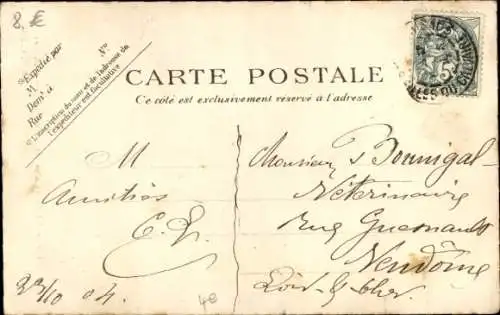 8. €
Expédié par
M
Demt à
Rue
No
L'inscription du nom et de l'adresse de
l'expéditeur est facultative
CARTE POSTALE
Ce côté est exclusivement réservé à l'adresse
5c
M
Amitiés
23/10 04.
4e
Monsieur
Vétérinaire
Rue Guesnault
Vendôme
Loir & Cher.